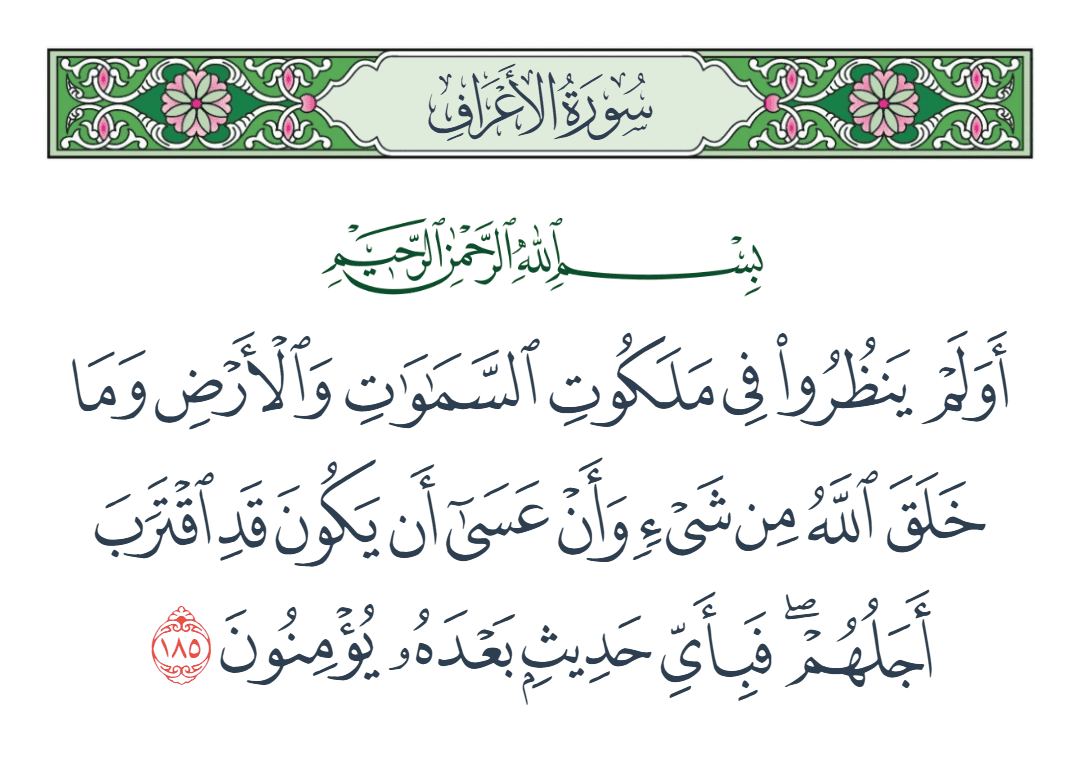 سُورَةُ الأَعْرَافِ
بِسْمِ ٱللَّهِ ٱلرَّحْمَٰنِ ٱلرَّحِيمِ
أَوَلَمْ يَنظُرُوا۟ فِى مَلَكُوتِ ٱلسَّمَٰوَٰتِ وَٱلْأَرْضِ وَمَا
خَلَقَ ٱللَّهُ مِن شَىْءٍ وَأَنْ عَسَىٰٓ أَن يَكُونَ قَدِ ٱقْتَرَبَ
أَجَلُهُمْ ۖ فَبِأَىِّ حَدِيثٍۭ بَعْدَهُۥ يُؤْمِنُونَ ١٨٥